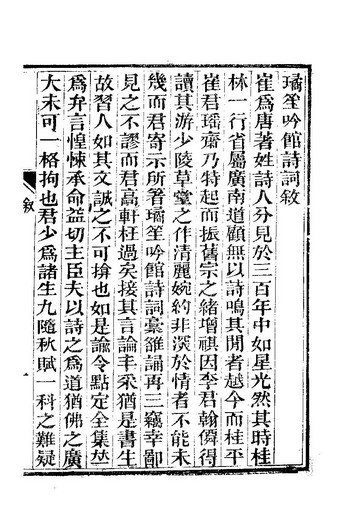 璚笙吟館詩詞敘
崔爲唐著姓詩人分見於三百年中如星光然其時桂
林一行省屬廣南道顧無以詩鳴其閒者越今而桂平
崔君瑤齋乃特起而振舊宗之緒增祺因李君翰僲得
讀其游少陵草堂之作清麗婉約非深於情者不能未
幾而君寄示所著璚笙吟館詩詞稾雒誦再三竊幸鄙
見之不謬而君高軒枉過矣接其言論丰采猶是書生
故習人如其文誠之不可揜也如是論令點定全集並
爲弁言惶悚承命益切主臣夫以詩之爲道猶佛之廣
大未可一格拘也君少爲諸生九隨秋賦一科之難疑
敘
一